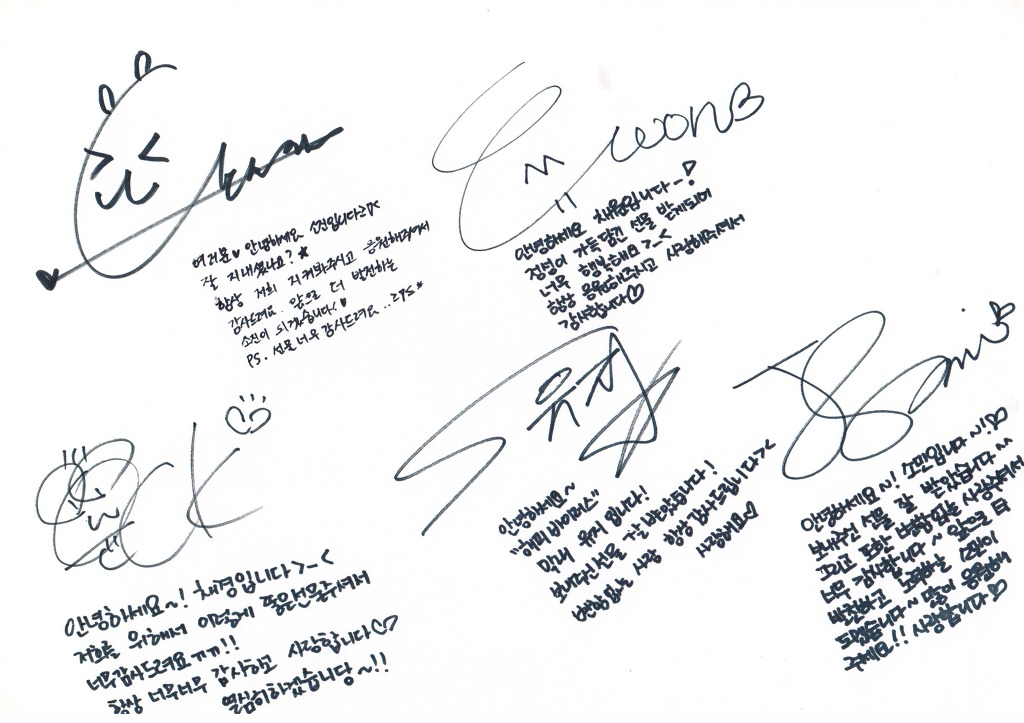 여러분♥ 안녕하세요 소진입니다>3<
잘 지내셨나요?★
항상 저희 지켜봐주시고 응원해주셔서
감사드려요. 앞으로 더 발전하는
소진이 되겠습니다!♥
PS. 선물 너무 감사드려요...
won
안녕하세요 채원입니다-!
정성이 가득 담긴 선물 받게되어
너무 행복해요>_<
항상 응원해주시고 사랑해주셔서
감사합니다♡
안녕하세요~! 채경입니다>-<
저희를 위해서 이렇게 좋은선물주셔서
너무감사드려요ㄲㄲ!!
항상 너무너무 감사하고 사랑합니다♡
열심히하겠습니당~!!
유정
안녕하세요~
"해피바이러스"
막내 유정 입니다!
보내주신선물 잘 받았습니다!
변함없는 사랑 항상 감사드립니다><
사랑해요♡
Somin
안녕하세요~! 소민입니다~!♡
보내주신 선물 잘 받았습니다^^
그리고 또한 변함없는 사랑주셔서
너무 감사합니다~ 앞으로 더
발전하고 노력하는 소민이
되겠습니다~많이 응원해
주세요!! 사랑합니다♡